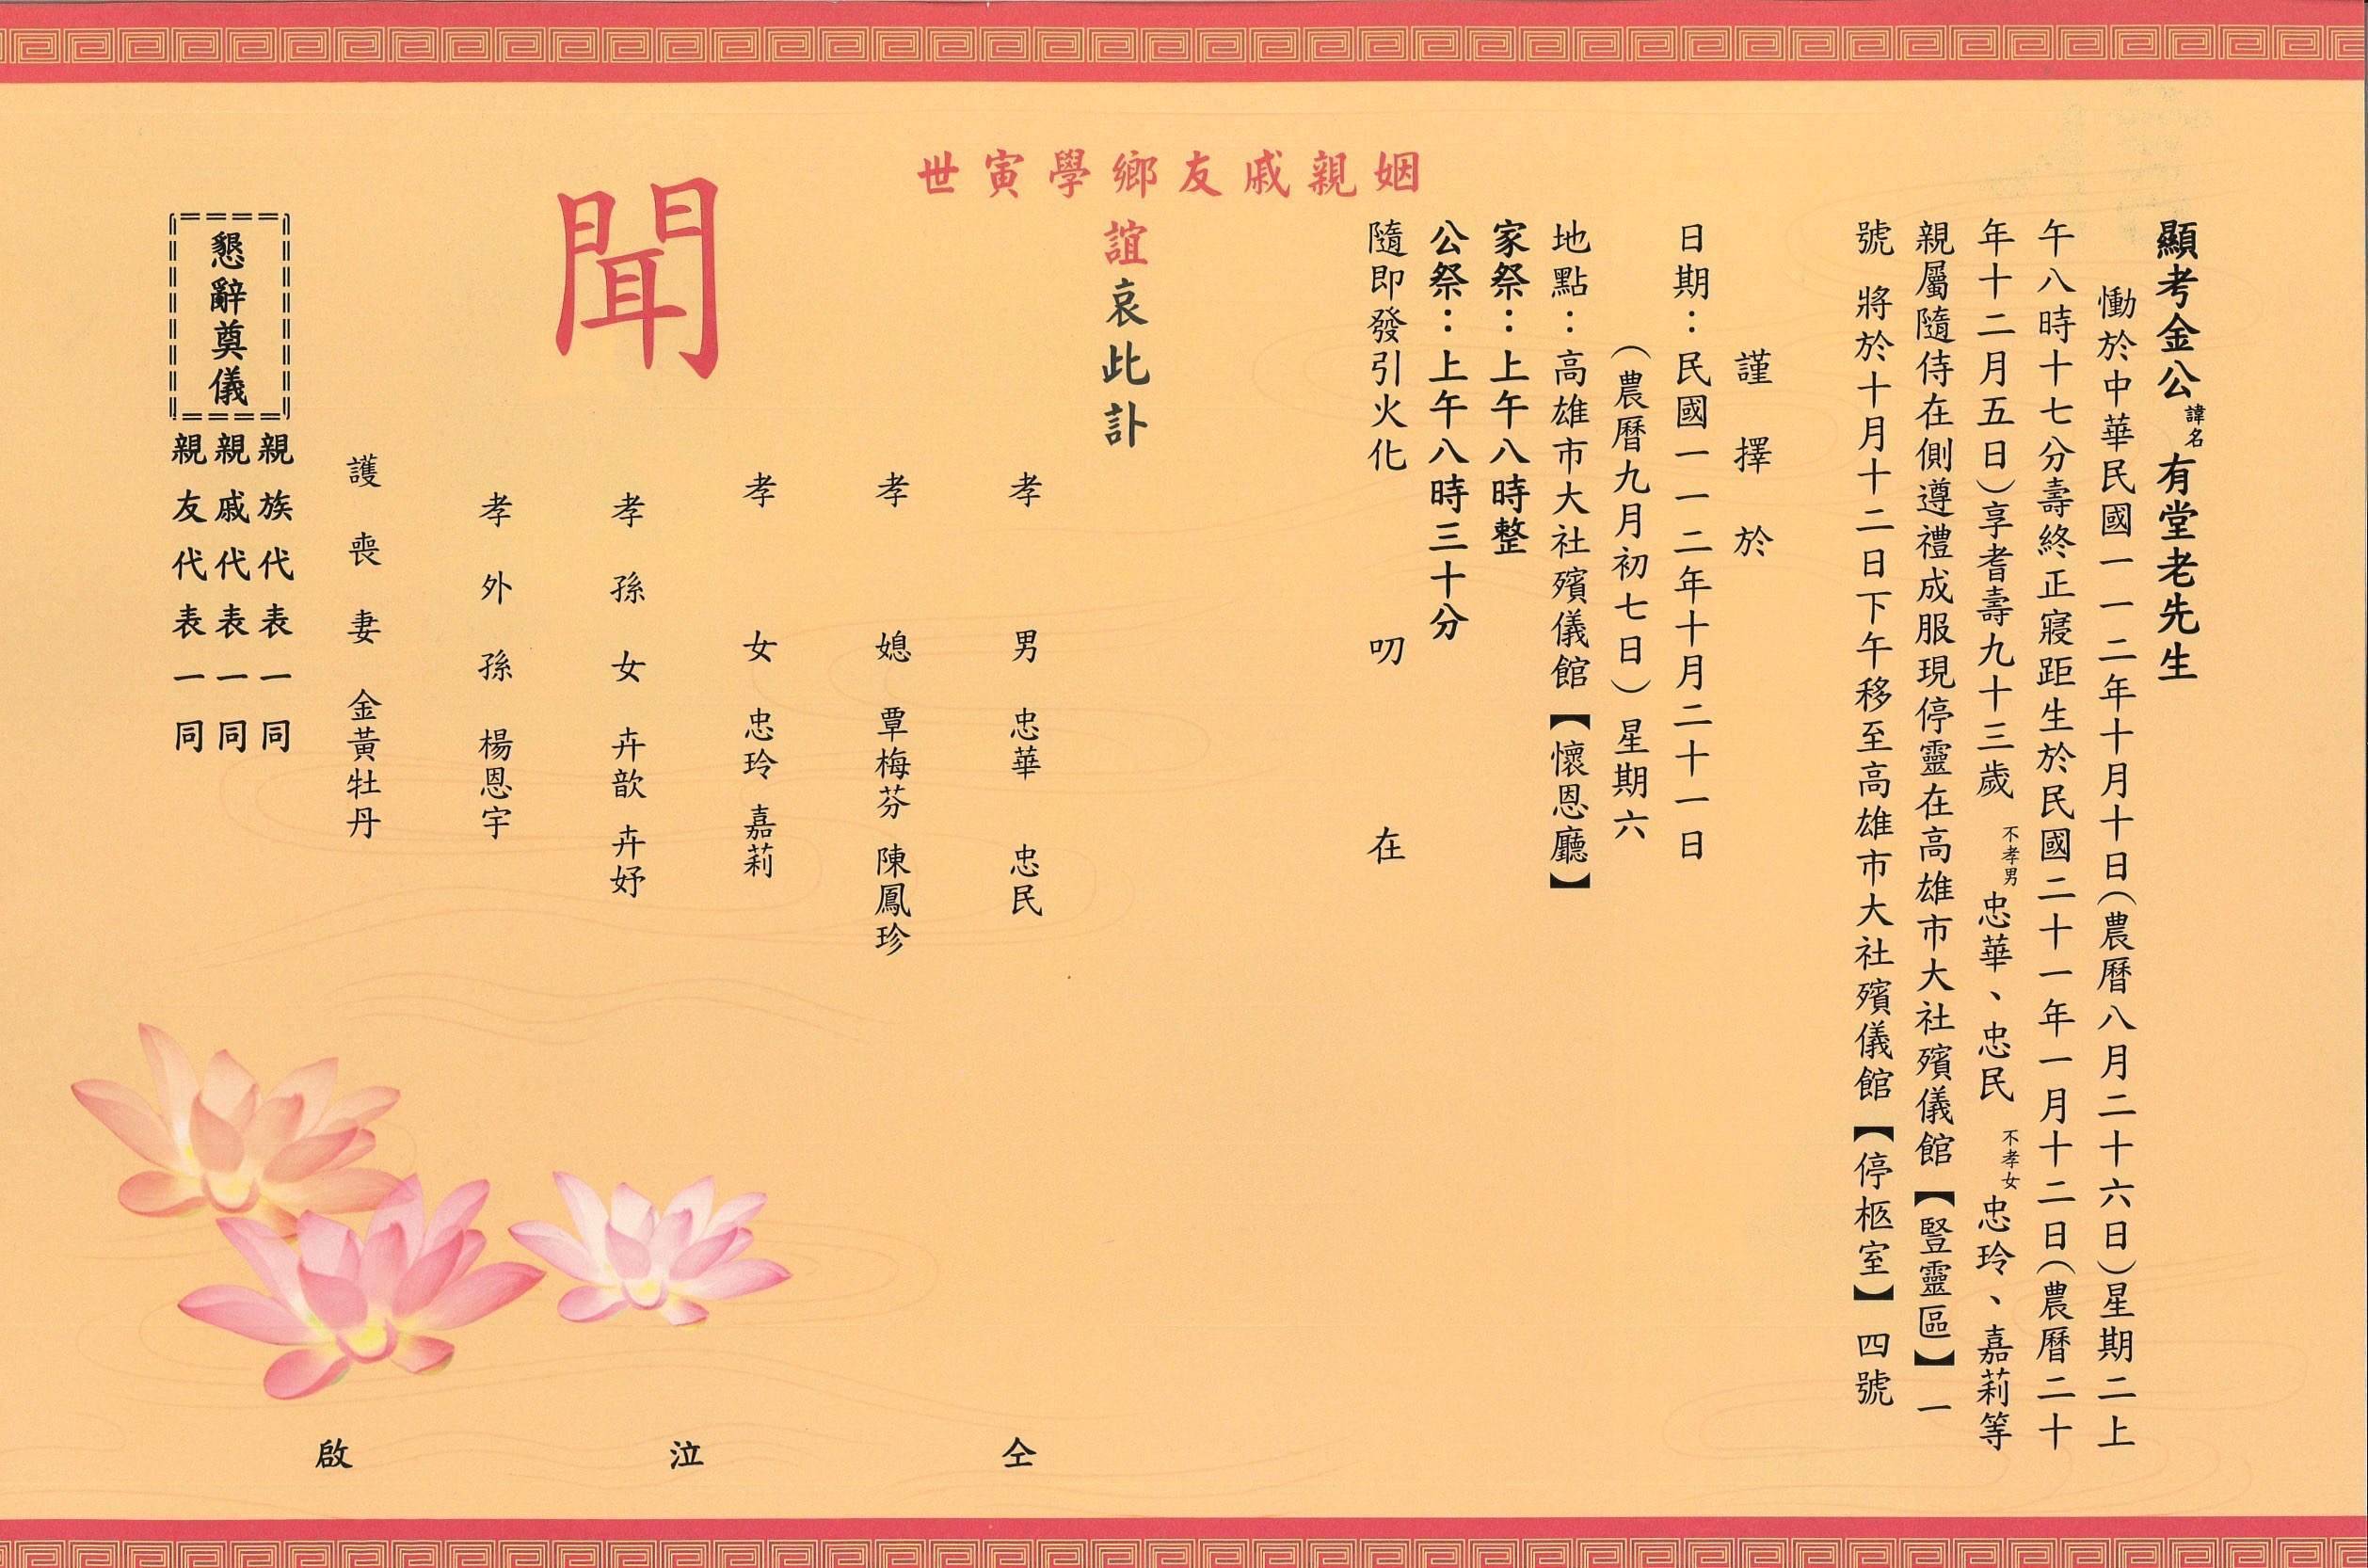 顯考金公諱名有堂老先生
慟於中華民國一一二年十月十日(農曆八月二十六日)星期二上
午八時十七分壽終正寢距生於民國二十一年一月十二日(農曆二十
年十二月五日)享耆壽九十三歲 不孝男忠華、忠民 不孝女忠玲、嘉莉等
親屬隨侍在側遵禮成服現停靈在高雄市大社殯儀館【豎靈區】一
號 將於十月十二日下午移至高雄市大社殯儀館【停柩室】四號
謹擇於
日期：民國一一二年十月二十一日
(農曆九月初七日)星期六
地點：高雄市大社殯儀館【懷恩廳】
家祭：上午八時整
公祭：上午八時三十分
隨即發引火化 叨在
姻親戚友鄉學寅世
誼哀此訃
聞
孝男 忠華 忠民
孝媳 覃梅芬 陳鳳珍
孝女 忠玲 嘉莉
孝孫女 卉歆 卉妤
孝外孫 楊恩宇
護喪妻 金黃牡丹
仝泣啟
親族代表一同
親戚代表一同
親友代表一同
懇辭奠儀